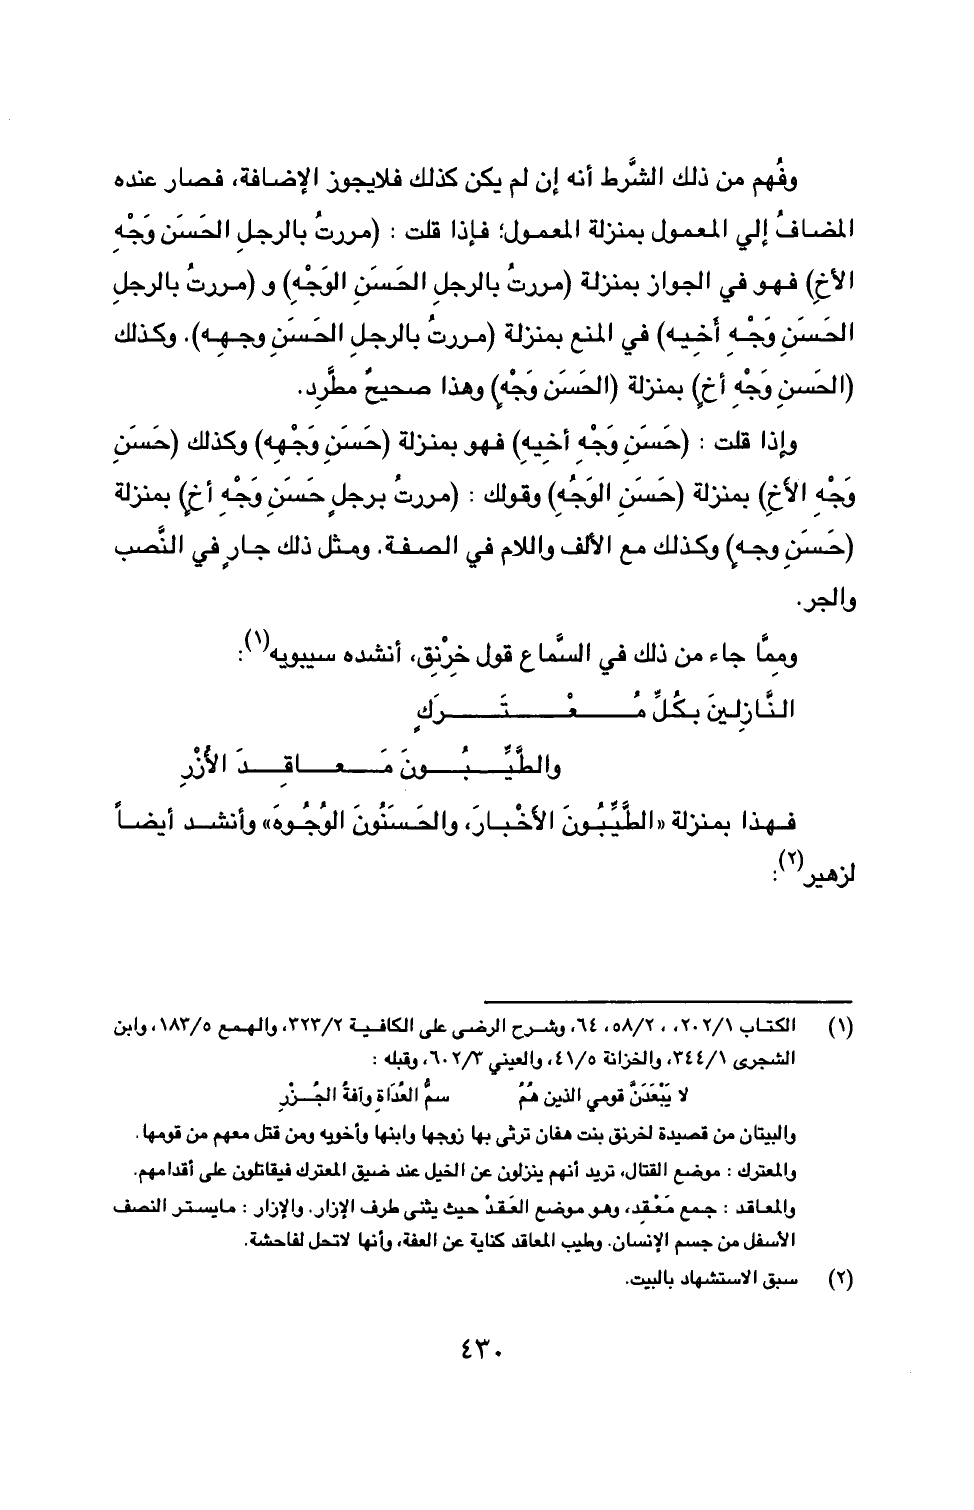 وفُهم من ذلك الشَّرط أنه إن لم يكن كذلك فلايجوز الإضافة، فصار عنده
المضافُ إلي المعمول بمنزلة المعمول؛ فإذا قلت : (مررتُ بالرجلِ الحَسَنِ وَجْهِ
الأخِ) فهو في الجواز بمنزلة (مررتُ بالرجلِ الحَسَنِ الوَجْهِ) و (مررتُ بالرجلِ
الحَسَنِ وَجْهِ أَخيه) في المنع بمنزلة (مررتُ بالرجلِ الحَسَنِ وجهِه). وكذلك
(الحَسنِ وَجْهِ أخٍ) بمنزلة (الحَسَنِ وَجْهٍ) وهذا صحيحٌ مطَّرِد.
وإذا قلت : (حَسَنِ وَجْهِ أخيه) فهو بمنزلة (حَسَنِ وَجْهِه) وكذلك (حَسَنِ
وَجْهِ الأخِ) بمنزلة (حَسَنِ الوَجْهِ) وقولك : (مررتُ برجلٍ حَسَنِ وَجْهِ أخٍ) بمنزلة
(حَسَنِ وجهٍ) وكذلك مع الألف واللام في الصفة. ومثل ذلك جارٍ في النَّصب
والجر.
وممَّا جاء من ذلك في السَّماع قول خِرْنِق، أنشده سيبويه(١):
النَّازِلينَ بكُلِّ مُعْتَرَكٍ
والطَّيِّبُونَ مَعاقِدَ الأُزْرِ
فهذا بمنزلة «الطَّيِّبُونَ الأخْبارَ، والحَسَنُونَ الوُجُوهَ» وأنشد أيضاً
لزهير(٢):
(١) الكتاب ٢٠٢/١، ، ٥٨/٢، ٦٤، وشرح الرضى على الكافية ٣٢٣/٢، والهمع ١٨٣/٥، وابن
الشجرى ٣٤٤/١، والخزانة ٤١/٥، والعيني ٦٠٢/٣، وقبله :
لا يَبْعَدَنَّ قومي الذين هُمُ سمُّ العُدَاةِ وآفةُ الجُزْرِ
والبيتان من قصيدة لخرنق بنت هفان ترثى بها زوجها وابنها وأخويه ومن قتل معهم من قومها.
والمعترك : موضع القتال، تريد أنهم ينزلون عن الخيل عند ضيق المعترك فيقاتلون على أقدامهم.
والمعاقد : جمع مَعْقِد، وهو موضع العَقدْ حيث يثنى طرف الإزار. والإزار : مايستر النصف
الأسفل من جسم الإنسان. وطيب المعاقد كناية عن العفة، وأنها لاتحل لفاحشة.
(٢) سبق الاستشهاد بالبيت.
٤٣٠